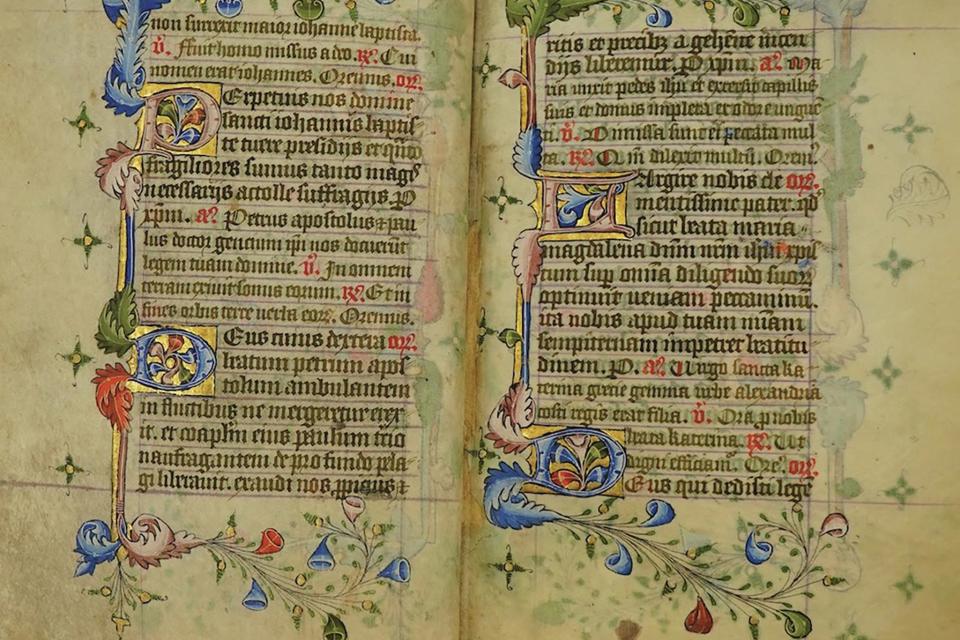 non surrexit maior iohanne baptista.
v̄. ffuit homo missus a deo. R̄. Cui
nomen erat iohannes. Oremus. or̄.
PErpetuis nos domine
sancti iohannis baptis
te tuere presidijs et qūto
fragiliores sumus tanto magꝭ
necessarijs attolle suffragijs. P
xp̄m. a᷑ Petrus apostolus ⁊ pau
lus doctor gentium ip̄i nos docuerūt
legem tuam domine. v̄. In omnem
terram exiuit sonus eorum. R̄. Et in
fines orbis terre verba eorꝝ. Oremus.
DEus cuius dextera or̄.
beatum petrum apos
tolum ambulantem
in fluctibus ne mergeretur erex
it. et coap̄lm eius paulum tercio
naufragantem de profundo pela
gi liberauit. exaudi nos propicius ⁊
ritis et precibꝫ a gehēne incen
dijs liberemur. P xp̄m. a᷑ Ma
ria unxit pedes ih̄u et extersit capillis
suis et domus impleta ex odore unguē
ti. v̄. Dimissa sunt ei peccata mul
ta. R̄. Qm̄ dilexit multū. Orem᷒.
LArgire nobis cle or̄.
mentissime pater. qd̄
sicut beata maria
magdalena dn̄m nr̄m ih̄m xp̄is
tum sup̱ omīa diligendo suorꝝ
optinuit ueniam peccaminū.
ita nobis apud tuam mīam
sempiternam impetret beatitu
dinem. P. a᷑ Uirgo sancta ka
terina grecie gemma urbe alexandria
costi regis erat filia. v̄. Ora p̱ nobis
beata katerina. R̄. Ut
digni efficiam᷒. Ore᷒. or̄.
DEus qui dedisti legē